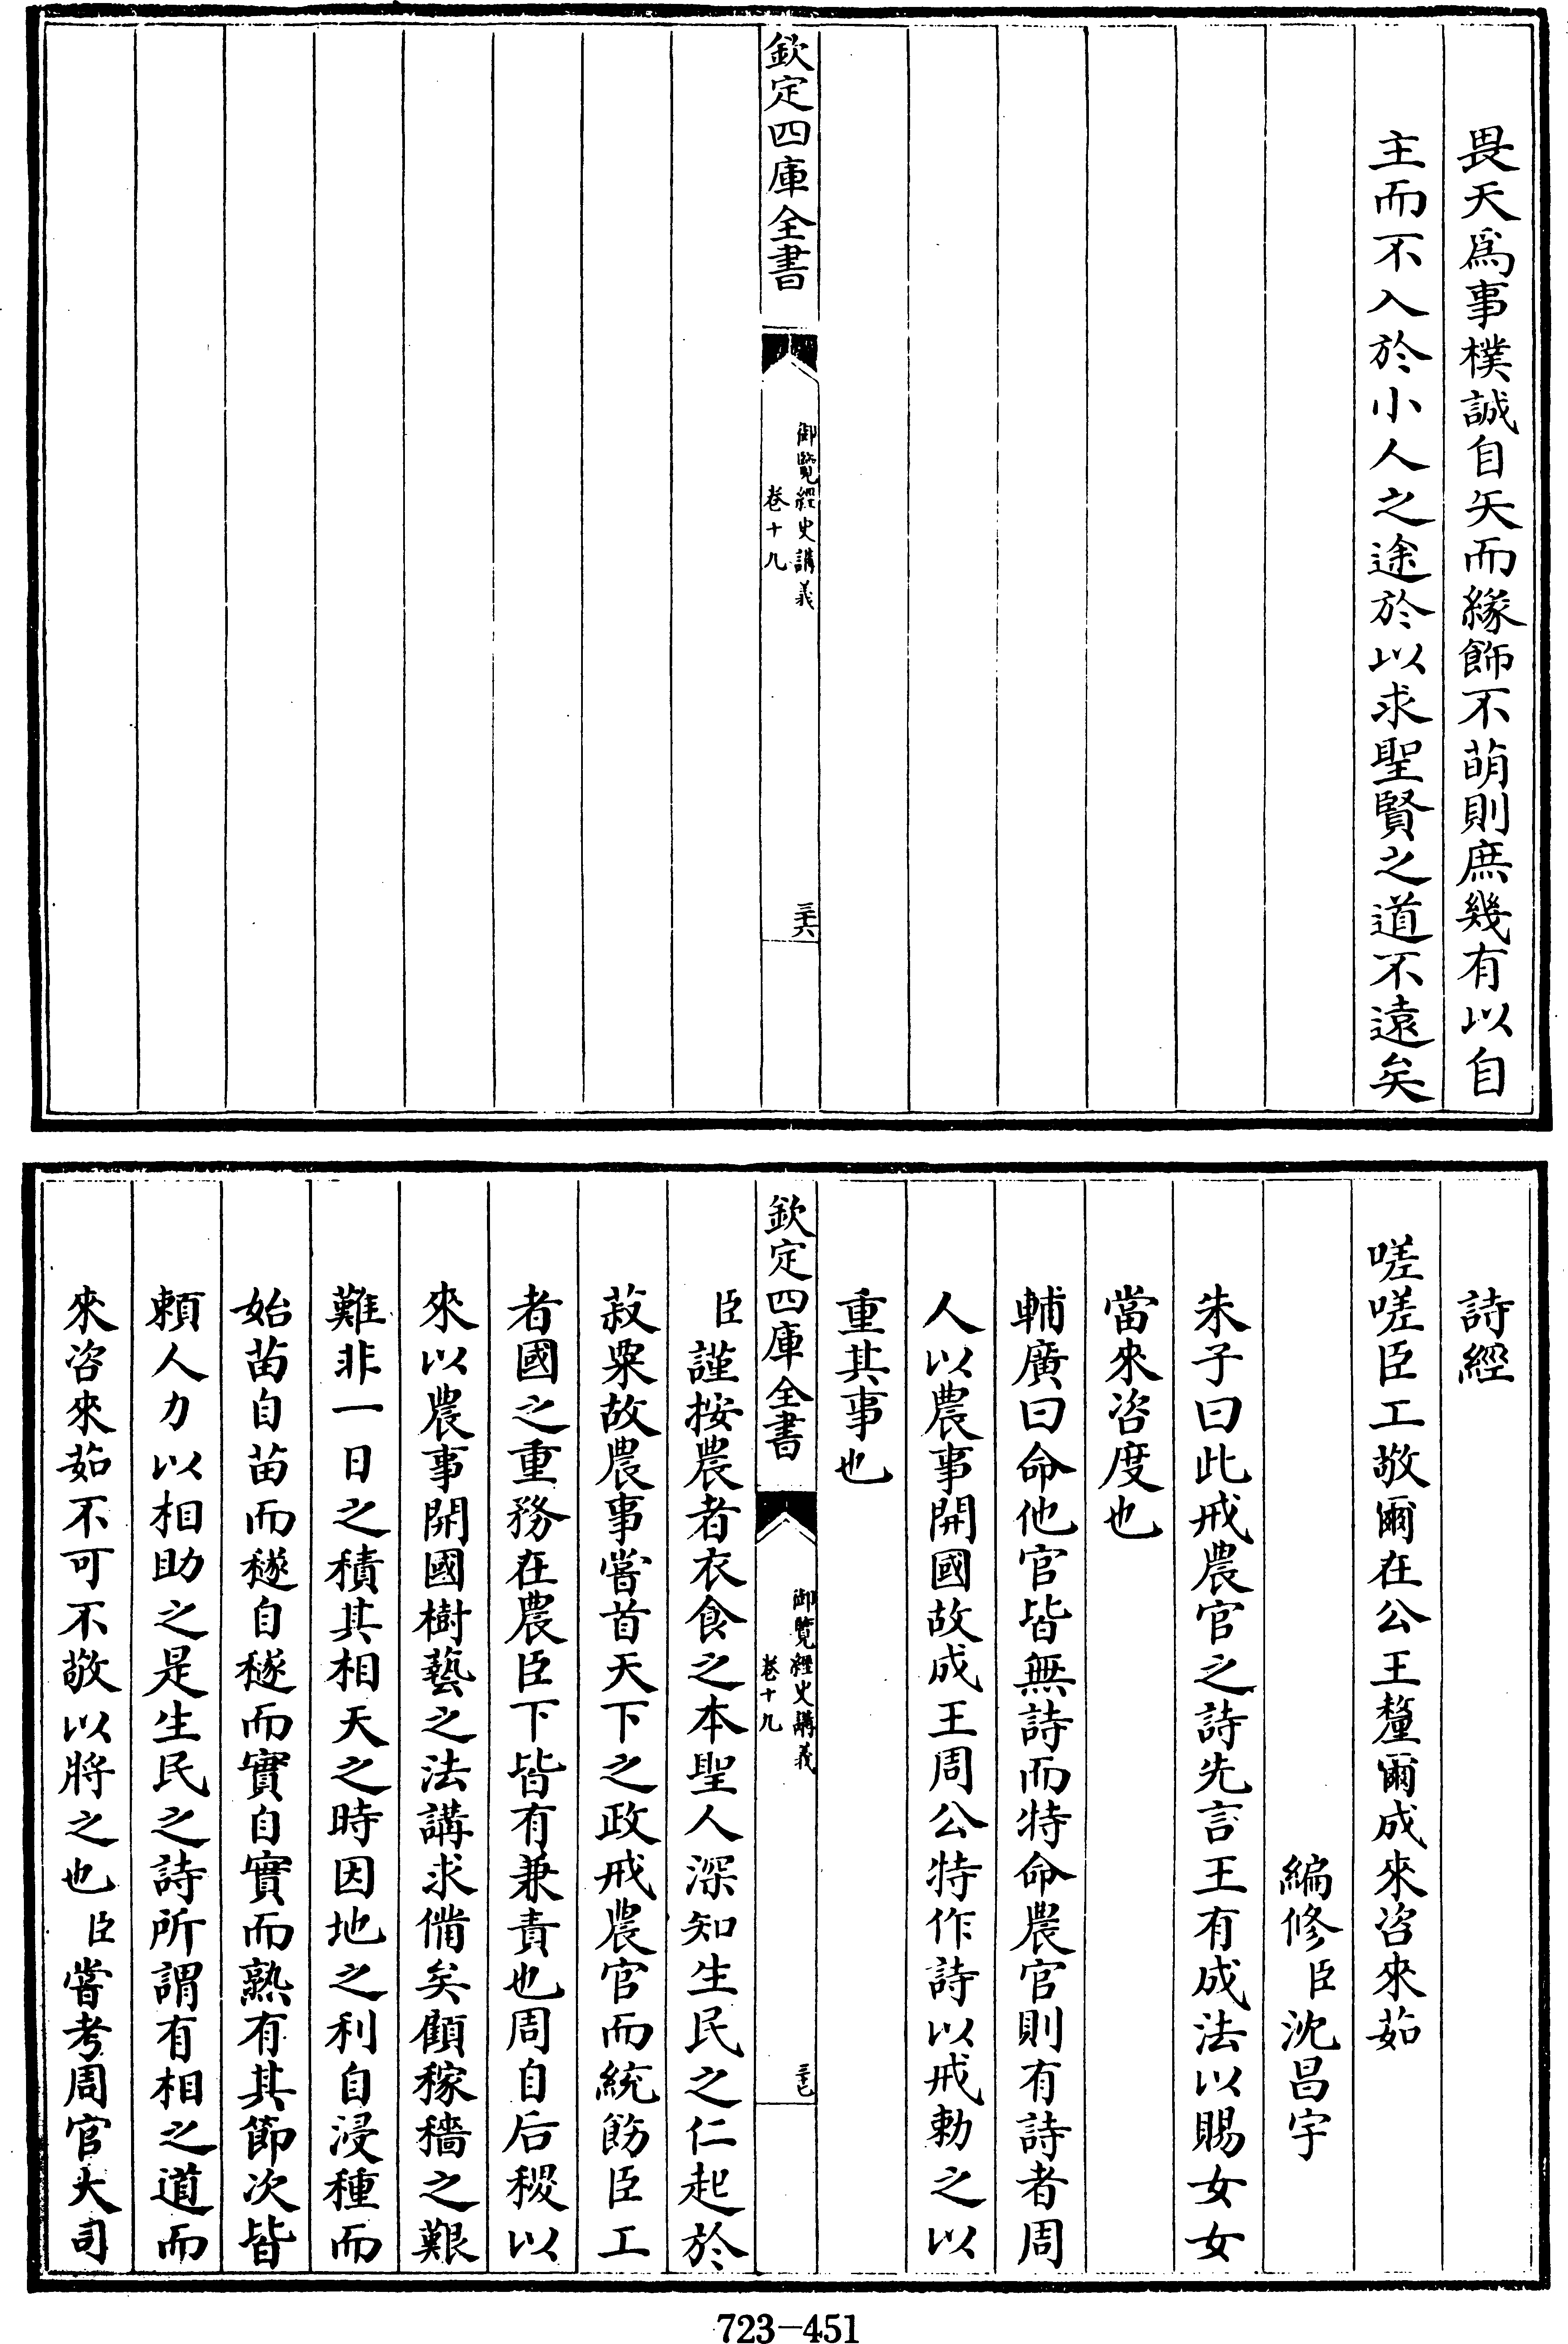 畏天爲事樸誠自矢而緣飾不萌則庶幾有以自
主而不入於小人之途於以求聖賢之道不遠矣
欽定四庫全書
御覽經史講義
卷十九
三六
詩經
嗟嗟臣工敬爾在公王釐爾成來咨來茹
編修臣沈昌宇
朱子曰此戒農官之詩先言王有成法以賜女女
當來咨度也
輔廣曰命他官皆無詩而特命農官則有詩者周
人以農事開國故成王周公特作詩以戒勅之以
重其事也
欽定四庫全書
御覽經史講義
卷十九
三七
臣謹按農者衣食之本聖人深知生民之仁起於
菽粟故農事嘗首天下之政戒農官而統飭臣工
者國之重務在農臣下皆有兼責也周自后稷以
來以農事開國樹藝之法講求備矣顧稼穡之艱
難非一日之積其相天之時因地之利自浸種而
始苗自苗而穟自穟而實自實而熟有其節次皆
賴人力以相助之是生民之詩所謂有相之道而
來咨來茹不可不敬以將之也臣嘗考周官大司
723-451